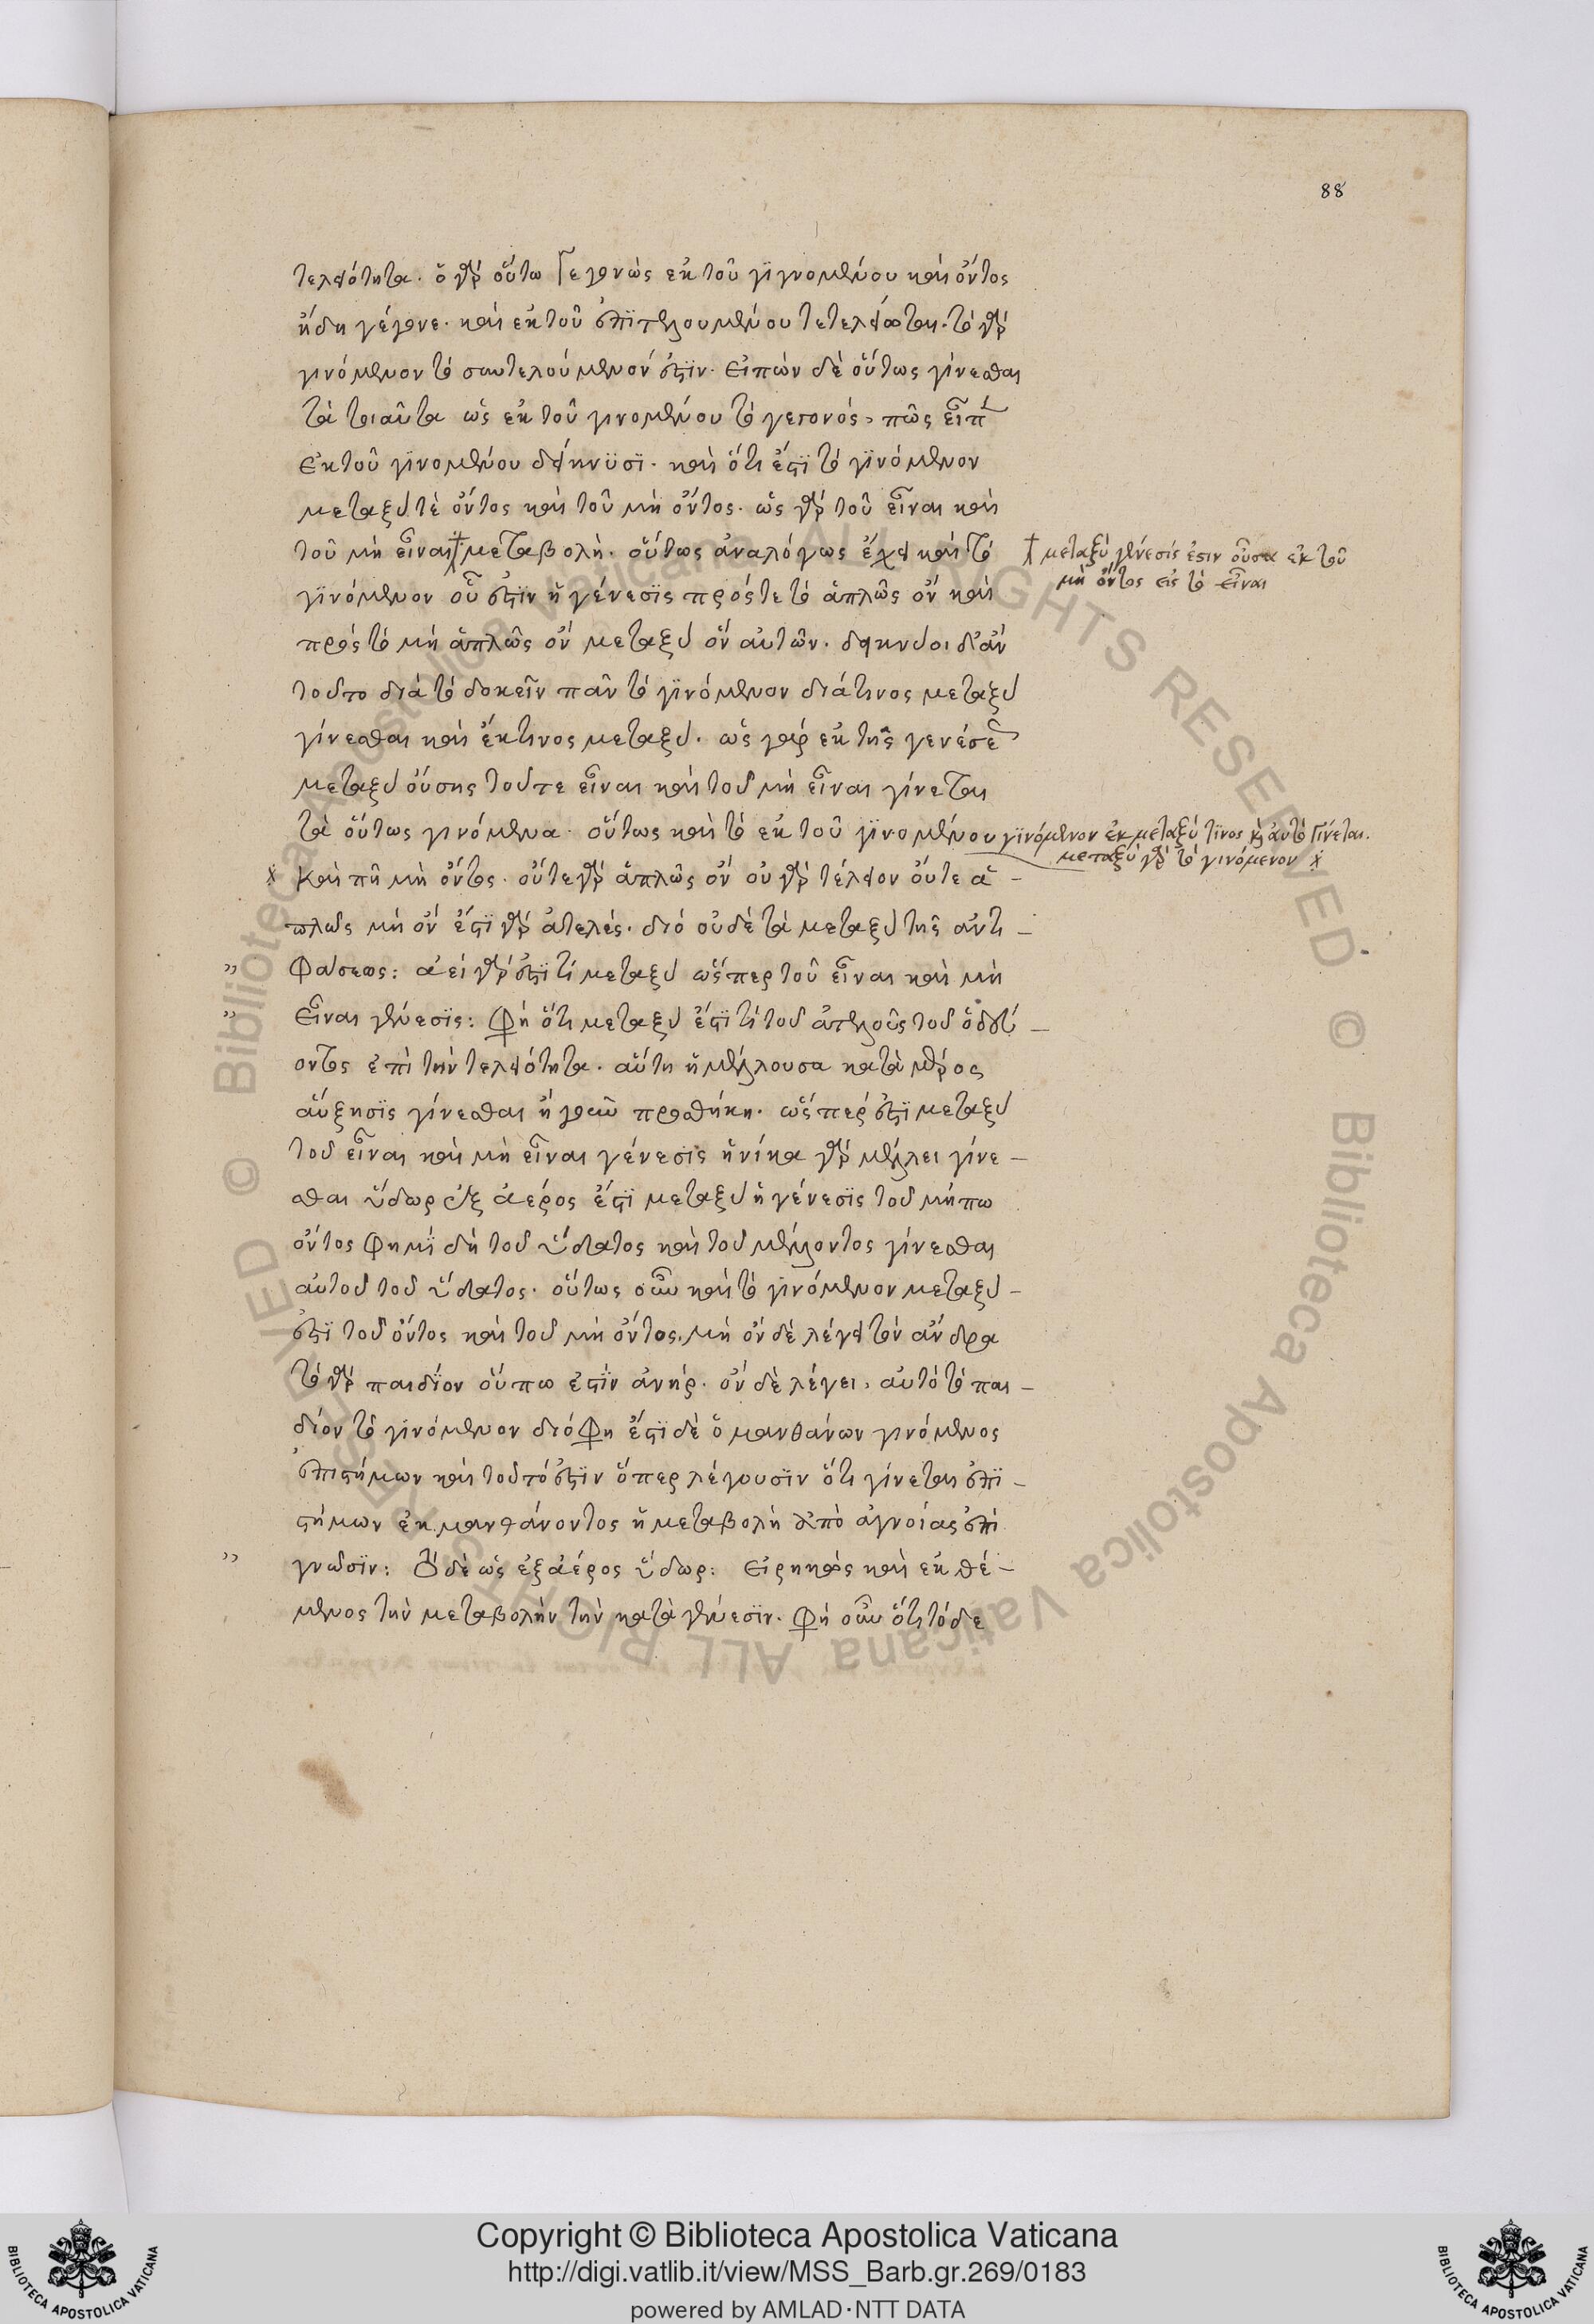 88
τελειότητα. ὁ γὰρ οὕτω γεγονὼς ἐκ τοῦ γϊγνομένου καὶ ὄντος
ἤδη γέγονε. καὶ ἐκ τοῦ ἐπϊτελουμένου τετελείωται. τὸ γὰρ
γινόμενον τὸ συντελούμενόν ἐστϊν. εἰπὼν δὲ οὕτως γίνεσθαι
τὰ τοιαῦτα ὡς ἐκ τοῦ γινομένου τὸ γεγονός, πῶς εἶπε
ἐκ τοῦ γϊνομένου δείκνϋσϊ. καὶ ὅτι ἔστϊ τὸ γϊνόμενον
μεταξὺ τὲ ὄντος καὶ τοῦ μὴ ὄντος. ὡς γὰρ τοῦ εἶναι καὶ
τοῦ μὴ εἶναι μεταβολὴ. οὕτως ἀναλόγως ἔχει καὶ τὸ
μεταξὺ γένεσίς ἐστιν οὖσα ἐκ τοῦ
μὴ ὄντος εἰς τὸ εἶναι
γϊνόμενον οὗ ἐστϊν ἡ γένεσϊς πρός τε τὸ ἁπλῶς ὂν καὶ
πρὸς τὸ μὴ ἁπλῶς ὂν μεταξὺ ὂν αὐτῶν. δεικνύοι δ' ἂν
τοῦτο διὰ τὸ δοκεῖν πᾶν τὸ γϊνόμενον διά τινος μεταξὺ
γίνεσθαι καὶ ἔκ τινος μεταξύ. ὡς γὰρ ἐκ τῆς γενέσε
μεταξὺ οὔσης τοῦ τε εἶναι καὶ τοῦ μὴ εἶναι γίνεται
τὰ οὕτως γινόμενα. οὕτως καὶ τὸ ἐκ τοῦ γϊνομένου γϊνόμενον ἐκ μεταξύ τϊνος καὶ αὐτὸ γίνεται.
μεταξὺ γὰρ τὸ γινόμενον
καὶ πῆ μὴ ὄντος. οὔτε γὰρ ἁπλῶς ὂν οὐ γὰρ τέλειον οὔτε ἁ-
πλῶς μὴ ὂν ἔστϊ γὰρ ἀτελές. διὸ οὐδὲ τὰ μεταξὺ τῆς ἀντι-
φάσεως: ἀεὶ γάρ ἐστϊ τὶ μεταξὺ ὥσπερ τοῦ εἶναι καὶ μὴ
εἶναι γένεσϊς: Φὴ ὅτι μεταξὺ ἔστϊ τὶ τοῦ ἀτελοῦς τοῦ ὁδεύ-
οντος ἐπὶ τὴν τελειότητα. αὕτη ἡ μέλλουσα κατὰ μέρος
αὔξησϊς γίνεσθαι ἤγουν προσθήκη. ὥσπέρ ἐστϊ μεταξὺ
τοῦ εἶναι καὶ μὴ εἶναι γένεσϊς ἡνίκα γὰρ μέλλει γίνε-
σθαι ὕδωρ ἐξ ἀέρος ἔστϊ μεταξὺ ἡ γένεσϊς τοῦ μήπω
ὄντος φημϊ δὴ τοῦ ὕδατος καὶ τοῦ μέλλοντος γίνεσθαι
αὐτοῦ τοῦ ὕδατος. οὕτως οὖν καὶ τὸ γϊνόμενον μεταξύ-
ἐστϊ τοῦ ὄντος καὶ τοῦ μὴ ὄντος. μὴ ὂν δὲ λέγει τὸν ἄνδρα
τὸ γὰρ παιδΐον οὔπω ἐστϊν ἀνήρ. ὂν δὲ λέγει, αὐτὸ τὸ παι-
δίον τὸ γϊνόμενον διό Φη ἔστϊ δὲ ὁ μανθάνων γινόμενος
ἐπιστήμων καὶ τοῦτό ἐστϊν ὅπερ λέγουσϊν ὅτι γίνεται ἐπϊ-
στήμων ἐκ μανθάνοντος ἡ μεταβολὴ ἀπὸ ἀγνοίας ἐπὶ
γνῶσϊν: Τὸ δὲ ὡς ἐξ ἀέρος ὕδωρ: εἰρηκὼς καὶ ἐκθέ-
μενος τὴν μεταβολὴν τὴν κατὰ γένεσϊν. Φὴ οὖν ὅτι τόδε
Copyright © Biblioteca Apostolica Vaticana
http://digi.vatlib.it/view/MSS_Barb.gr.269/0183
powered by AMLAD·NTT DATA